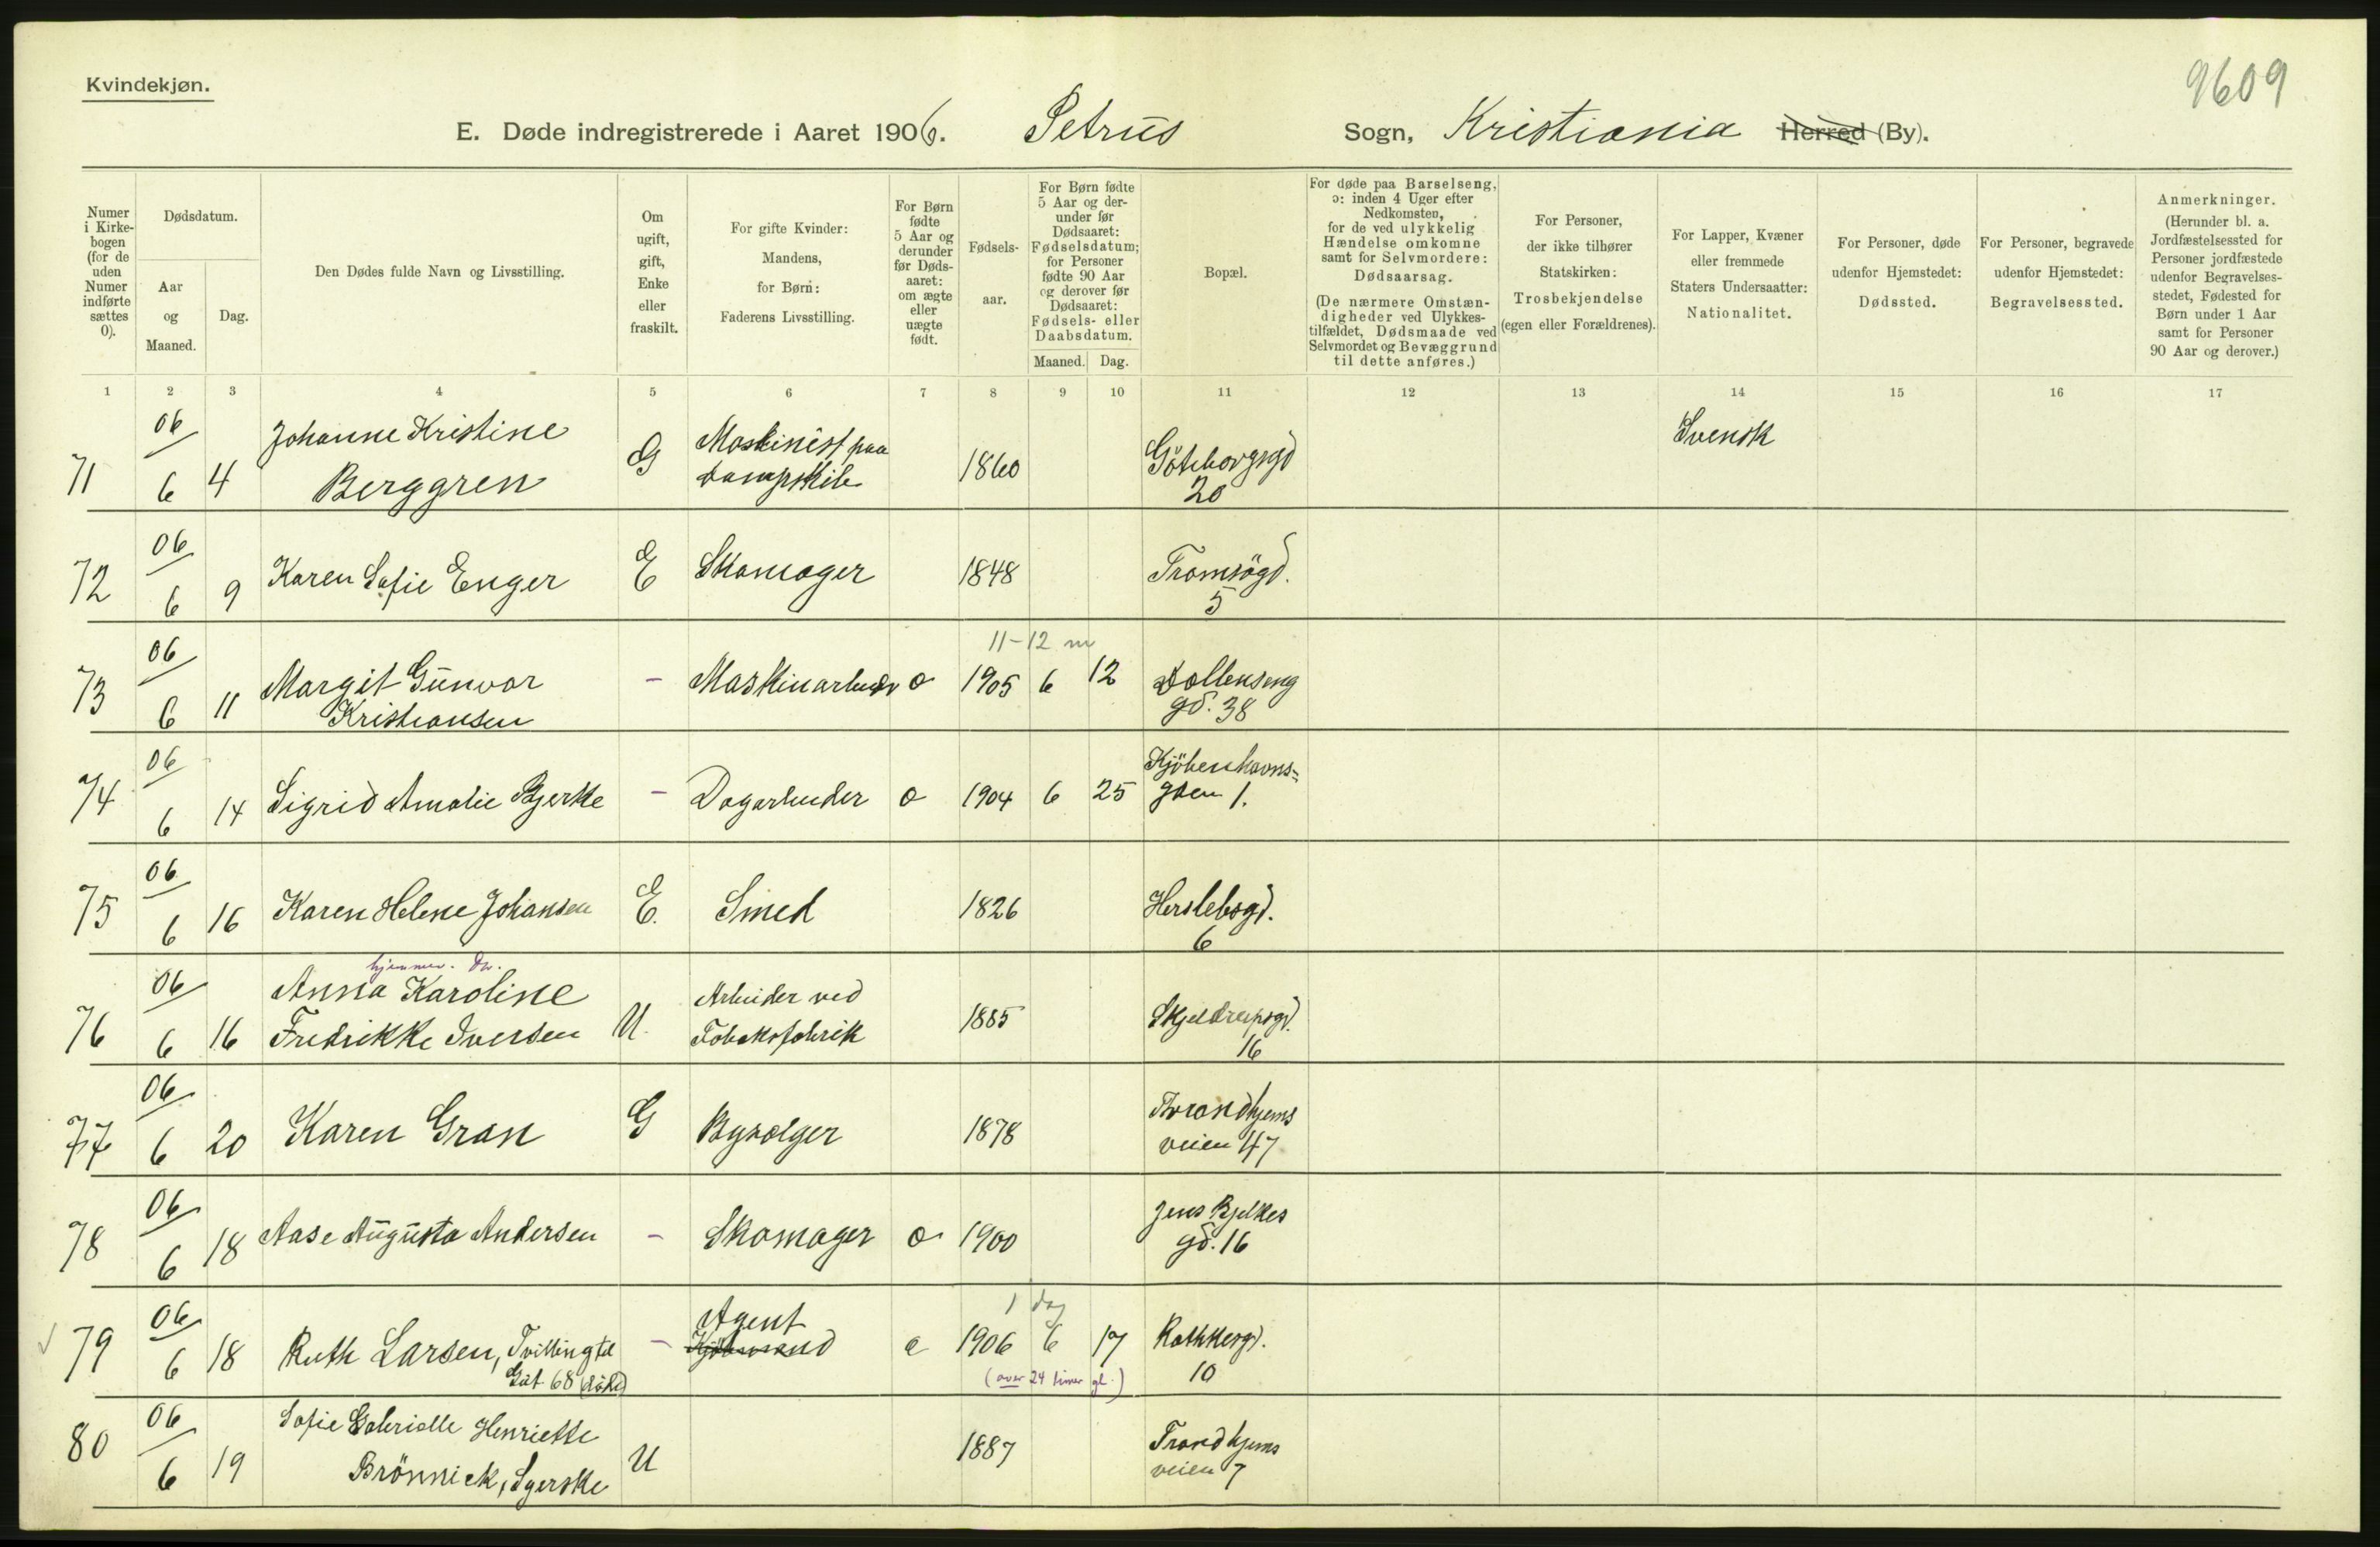 Kvindekjøn.
9609
E. Døde indregistrerede i Aaret 1906. Petrus Sogn, Kristiania Herred (By).
Numer i Kirkebogen (for de uden Numer indførte sættes 0).
Dødsdatum.
Aar og Maaned.
Dag.
Den Dødes fulde Navn og Livsstilling.
Om ugift, gift, Enke eller fraskilt.
For gifte Kvinder: Mandens, for Børn: Faderens Livsstilling.
For Børn fødte 5 Aar og derunder før Dødsaaret: om ægte eller uægte født.
Fødselsaar.
For Børn fødte 5 Aar og derunder før Dødsaaret: Fødselsdatum; for Personer fødte 90 Aar og derover før Dødsaaret: Fødsels- eller Daabsdatum.
Maaned. Dag.
Bopæl.
For døde paa Barselseng, ɔ: inden 4 Uger efter Nedkomsten, for de ved ulykkelig Hændelse omkomne samt for Selvmordere: Dødsaarsag.
(De nærmere Omstændigheder ved Ulykkestilfældet, Dødsmaade ved Selvmordet og Bevæggrund til dette anføres.)
For Personer, der ikke tilhører Statskirken: Trosbekjendelse (egen eller Forældrenes).
For Lapper, Kvæner eller fremmede Staters Undersaatter: Nationalitet.
For Personer, døde udenfor Hjemstedet: Dødssted.
For Personer, begravede udenfor Hjemstedet: Begravelsessted.
Anmerkninger.
(Herunder bl. a. Jordfæstelsessted for Personer jordfæstede udenfor Begravelsesstedet, Fødested for Børn under 1 Aar samt for Personer 90 Aar og derover.)
1 2 3 4 5 6 7 8 9 10 11 12 13 14 15 16 17
71 06/6 4 Johanne Kristine Berggren G Maskinist paa Dampskib 1860 Göteborgsgd 20 Svensk
72 06/6 9 Karen Sofie Enger E Skomager 1848 Tromsögd. 5
11-12 m
73 06/6 11 Margit Gunvor Kristiansen - Maskinarbeider 1905 6 12 gd. 38
74 06/6 14 Sigrid Amalie Bjerke - Dagarbeider 1904 6 25 Kjöbenhavns= gden 1.
75 06/6 16 Karen Helene Johansen E. Smed 1826 Herslebsgd. 6
76 06/6 16 Anna Karoline Fredrikke Iversen U. Arbeider ved Tobaksfabrik 1885 16
77 06/6 20 Karen Gran G Bysælger 1878 Trondhjems veien 47
78 06/6 18 Aase Augusta Andersen - Skomager 1900 Jens Bjelkes gd. 16
1 dag
79 06/6 18 Ruth Larsen, Tvilling til Gut 68 - Agent Kjöbmand 1906 6 17 Rathkesgd. 10
(over 24 timer gl.)
80 06/6 19 Sofie Gabrielle Henriette Brönnick, Syerske U 1887 Trondhjems veien 7